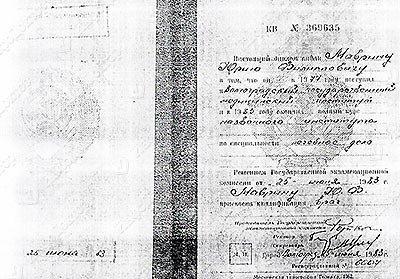 КВ № 369635
Настоящий диплом выдан Маврину
Юрию Филипповичу
в том, что он в 1977 году поступил
в Волгоградский государственный
медицинский институт
и в 1983 году окончил полный курс
названного института
по специальности лечебное дело
Решением Государственной экзаменационной
комиссии от 25 июня 1983 г.
Маврину Ю.Ф.
присвоена квалификация врач
Председатель Государственной
экзаменационной
Ректор
Секретарь
М. П.
Город июня 1983 г.
Регистрационный №
25 июня 83